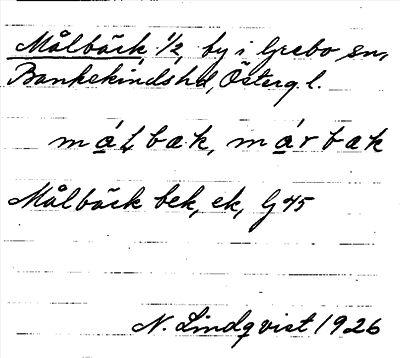 Målbäck 1/2, by i Grebo sn,
Bankekinds hd, Österg. l.
må̱Lbæk, må̱rbæk
Målbäck bek, ek, G 45
N. Lindqvist 1926